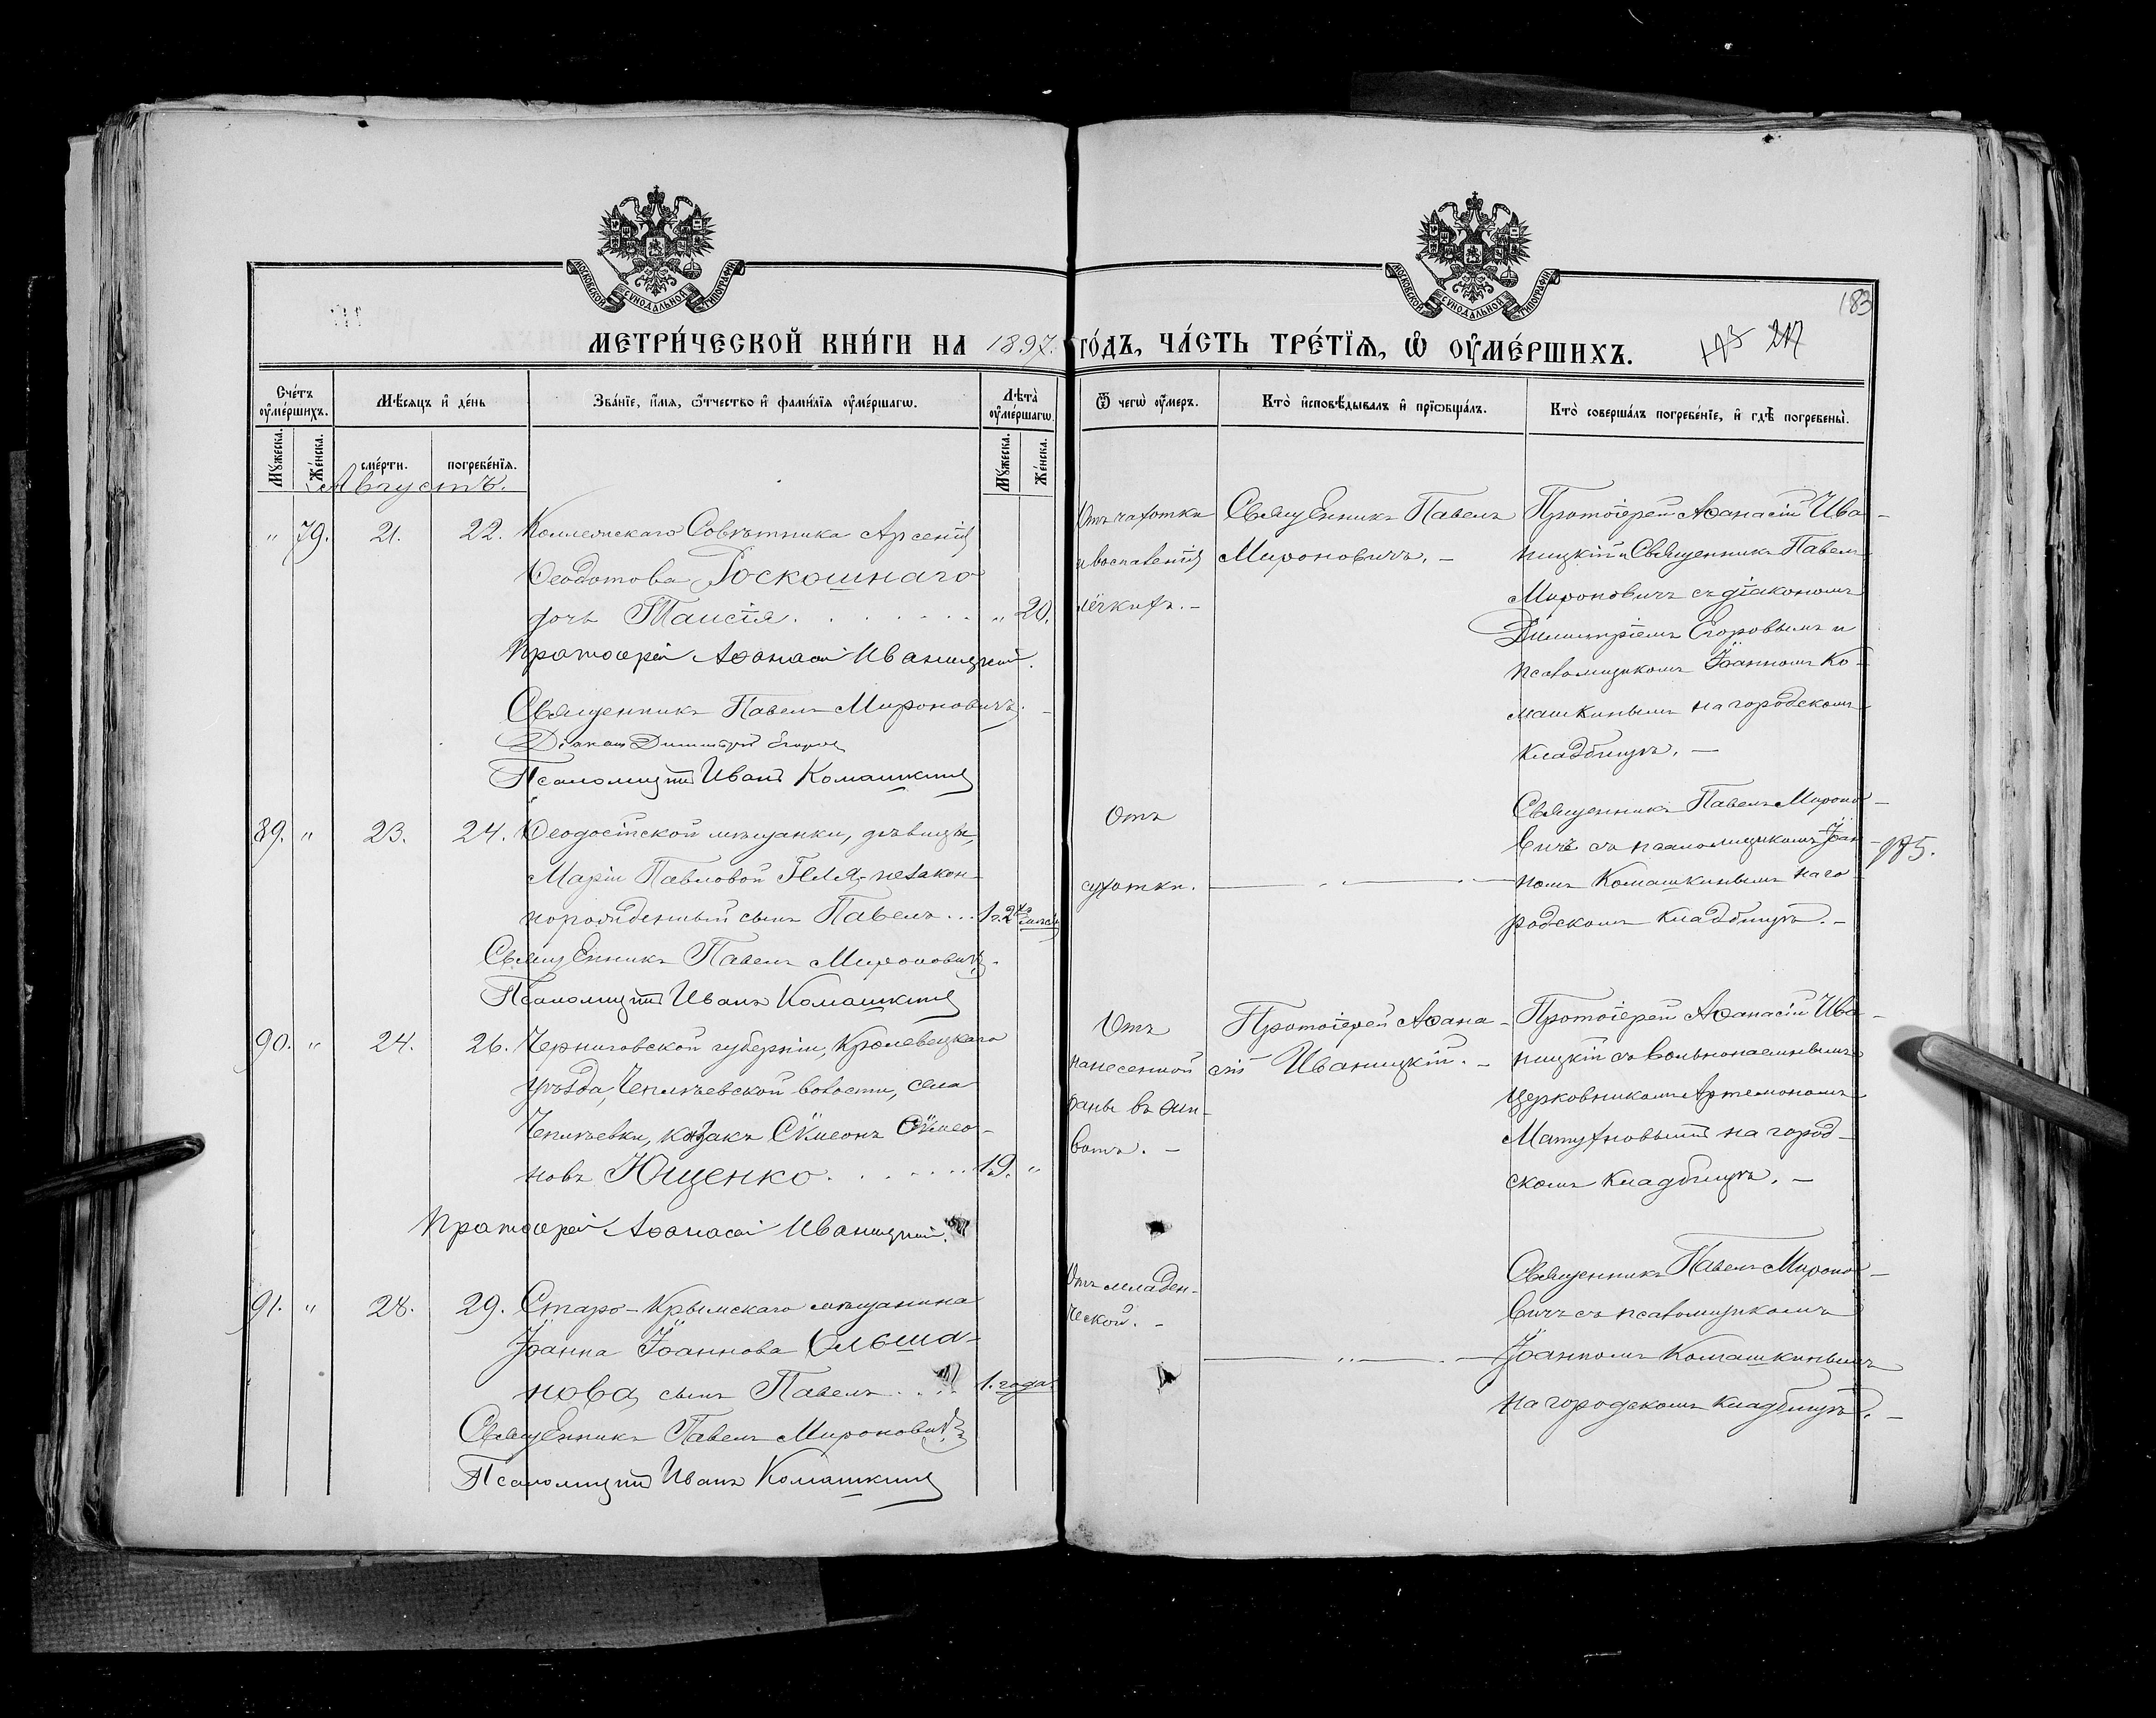 МОСКОВСКОЙ СУНОДАЛЬНОЙ ТИПОГРАФІИ
МОСКОВСКОЙ СУНОДАЛЬНОЙ ТИПОГРАФІИ
183
МЕТРИ́ЧЕСКОЙ КНИ́ГИ НА 1897. ГО́ДЪ, ЧА́СТЬ ТРЕ́ТІѦ, Ѡ ОУ҆МЕ́РШИХЪ.
193 217
Сче́тъ оу҆ме́ршихъ.
Мѣ́сяцъ и҆ де́нь
Зва́нїе, и҆́мѧ, ѻ҆́тчество и҆ фами́лїѧ оу҆ме́ршагѡ.
Лѣ́та оу҆ме́ршагѡ.
Ѿ чегѡ̀ оу҆́меръ.
Кто̀ и҆сповѣ́дывалъ и҆ прїѡбща́лъ.
Кто̀ соверша́лъ погребе́нїе, и҆ гдѣ̀ погребены̀.
Мꙋ́жеска.
Же́нска.
сме́рти.
погребе́нїѧ.
Мꙋ́жеска.
Же́нска.
Августъ.
" 79. 21. 22. Коллежскаго Совѣтника Арсенія
Ѳеодотова Роскошнаго
дочь Таисія. . . . . . . . " 20.
Протоіерей Аѳанасій Иваницкій.
Священникъ Павелъ Мироновичъ.
Діаконъ Димитрій Егоровъ
Псаломщикъ Иванъ Комашкинъ
Отъ чахотки
и воспаленія
лёгкихъ. –
Священникъ Павелъ
Мироновичъ. –
Протоіерей Аѳанасій Ива-
ницкій и Священникъ Павелъ
Мироновичъ съ діакономъ
Димитріемъ Егоровымъ и
псаломщикомъ Іоанномъ Ко-
машкинымъ на городскомъ
кладбищѣ. –
89. " 23. 24. Ѳеодосійской мѣщанки, дѣвицы,
Маріи Павловой незакон-
норожденный сынъ Павелъ ... 1 г. 2 мѣс.
Священникъ Павелъ Мироновичъ.
Псаломщикъ Иванъ Комашкинъ
Отъ
сухотки.
Священникъ Павелъ Мироно-
вичъ съ псаломщикомъ Іоан-
номъ Комашкинымъ на го-
родскомъ кладбищѣ. –
185.
90. " 24. 26. Черниговской губерніи, Кролевецкаго
уѣзда, Чеплѣевской волости, села
Чеплѣевки, козакъ Сѵмеонъ Сѵмео-
новъ Ющенко. . . . . . . 19. "
Протоіерей Аѳанасій Иваницкій.
Отъ
нанесенной
раны въ жи-
вотъ. –
Протоіерей Аѳана-
сій Иваницкій. –
Протоіерей Аѳанасій Ива-
ницкій съ вольнонаемнымъ
церковникомъ Артемономъ
Матухновымъ на город-
скомъ кладбищѣ. –
91. " 28. 29. Старо-Крымскаго мѣщанина
Іоанна Іоаннова Ольша-
нова, сынъ Павелъ . . . 1. года.
Священникъ Павелъ Мироновичъ
Псаломщикъ Иванъ Комашкинъ
Отъ младен-
ческой. –
Священникъ Павелъ Мироно-
вичъ съ псаломщикомъ
Іоанномъ Комашкинымъ
на городскомъ кладбищѣ. –